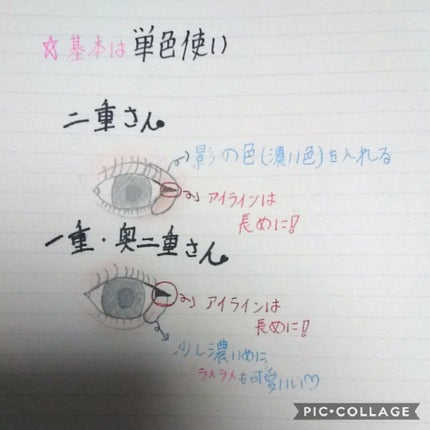 ☆基本は単色使い
二重さん。
影の色(濃い色)を入れる
アイラインは
長めに!
一重・奥二重さん。
アイラインは
長めに!
少し濃いめに
ラメラメも可愛いい♡
PIC•COLLAGE